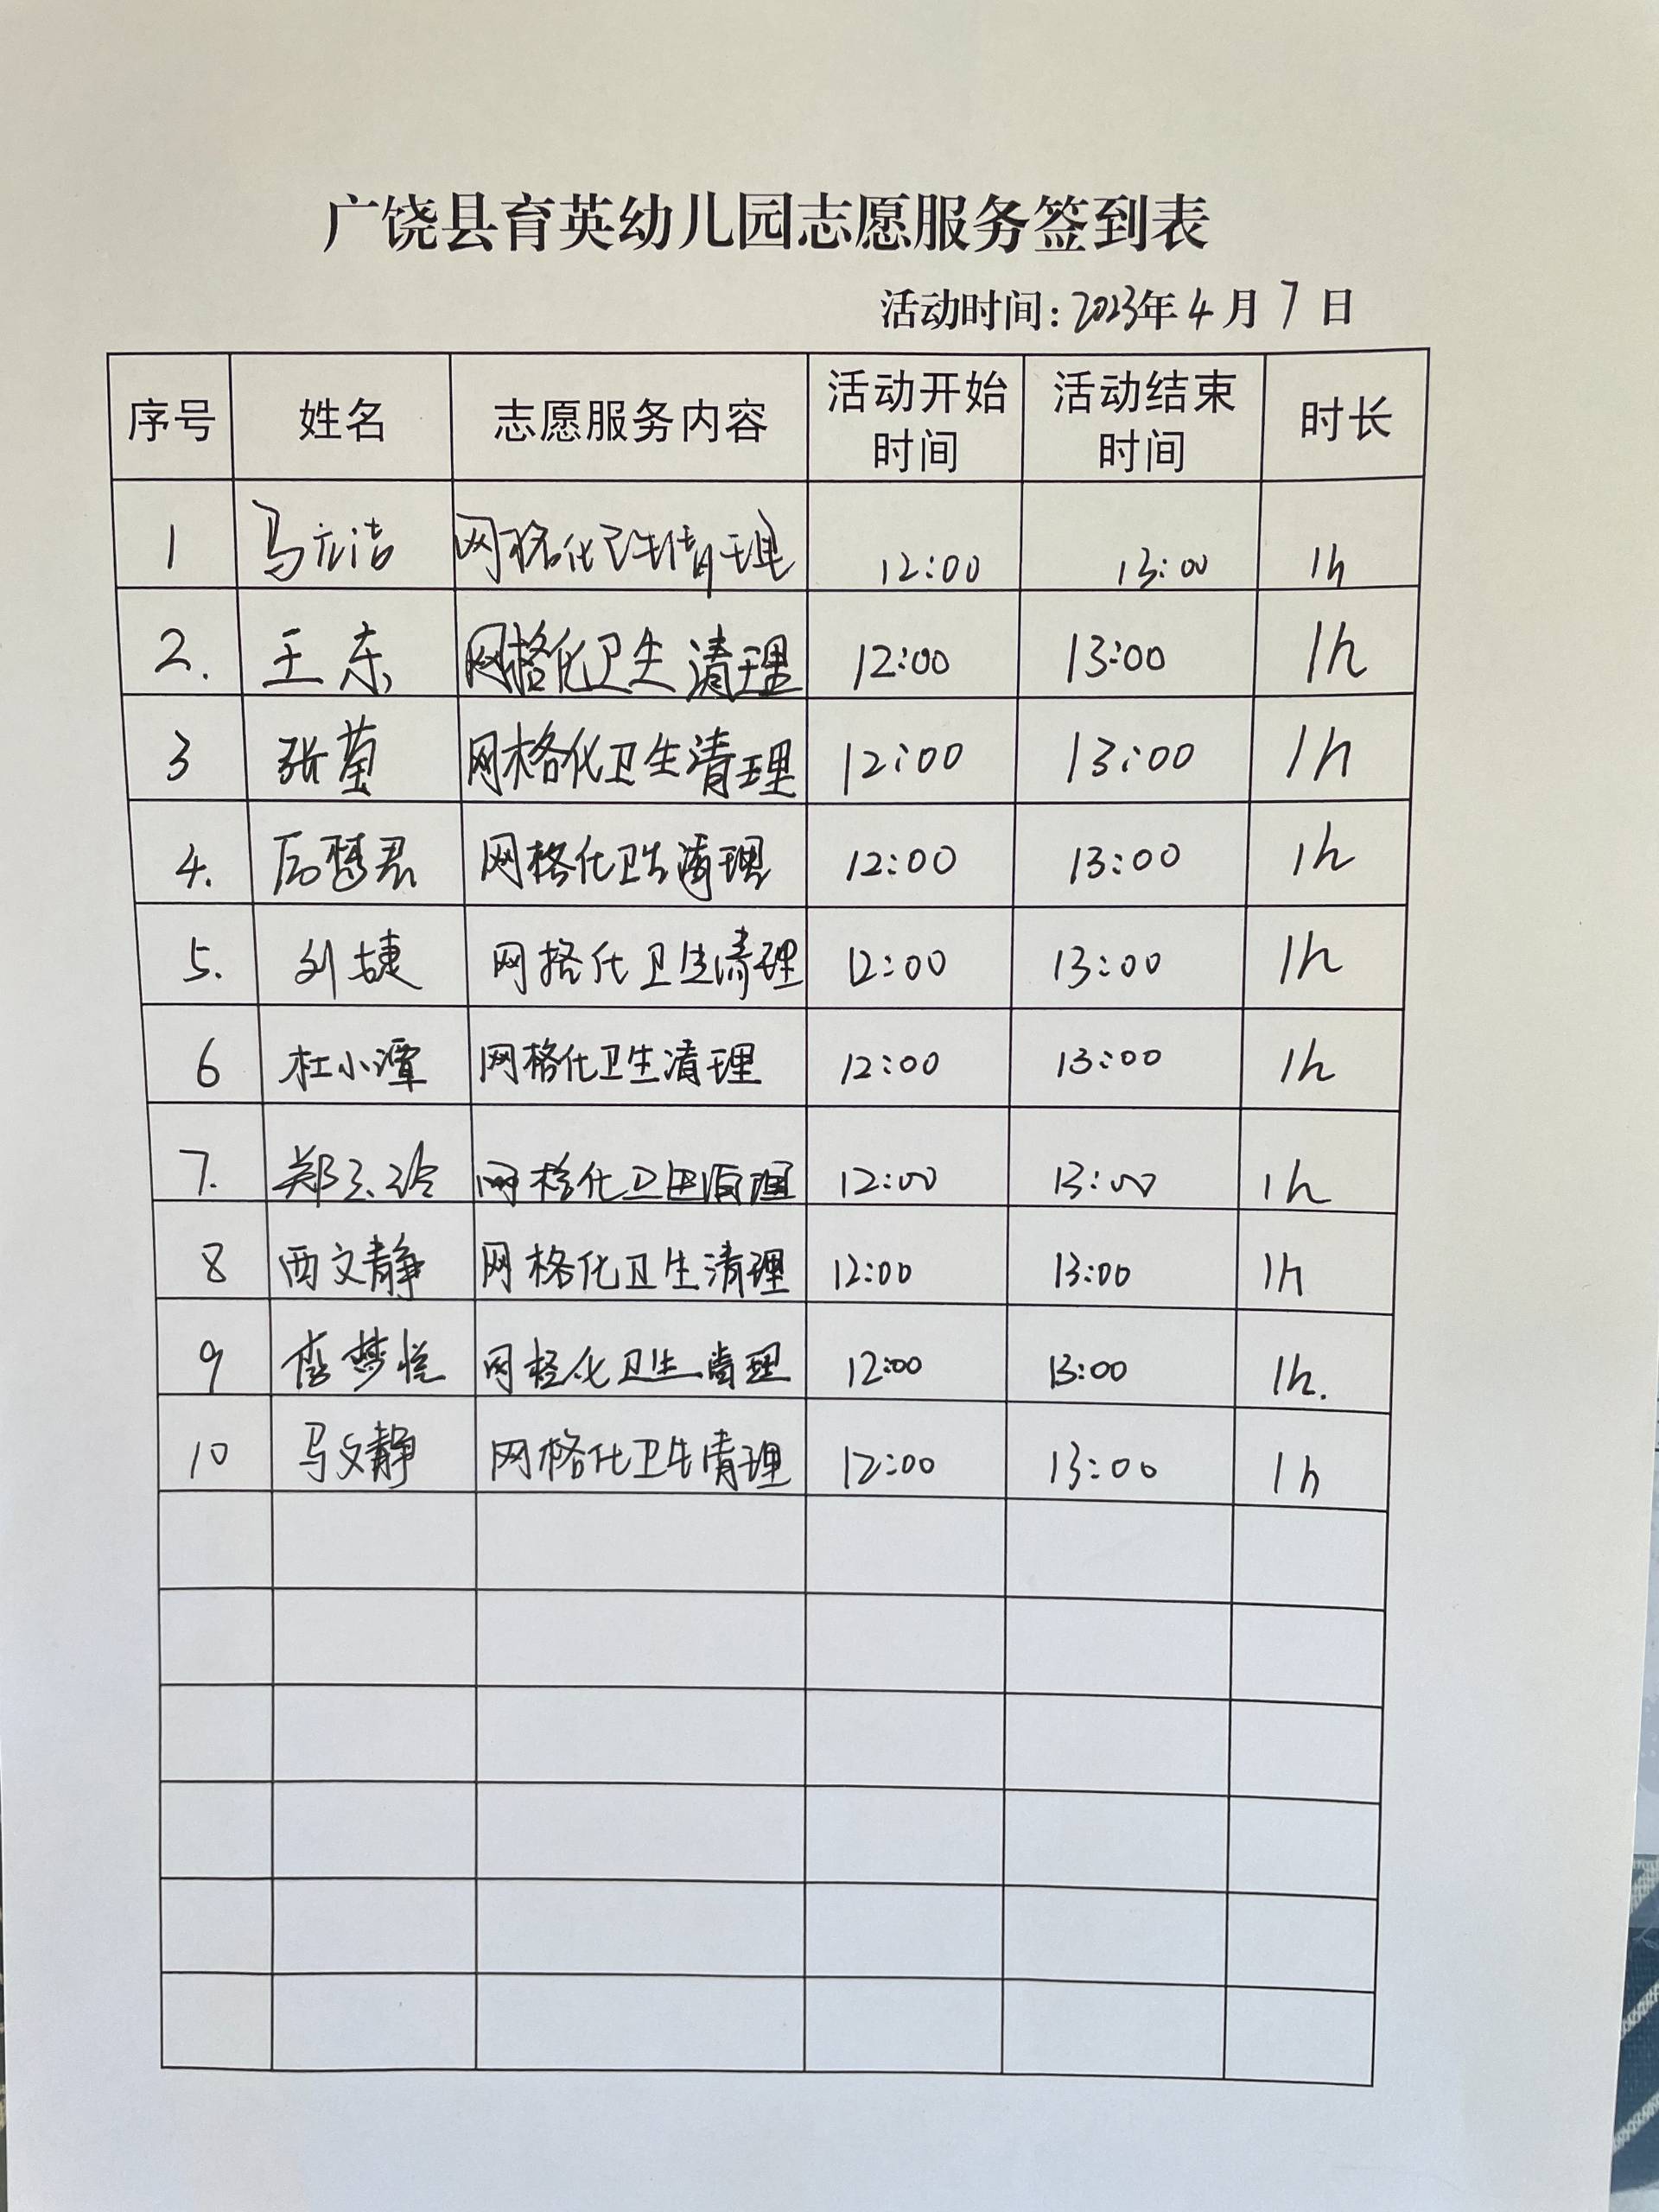 广饶县育英幼儿园志愿服务签到表
活动时间：2023年4月7日
序号 姓名 志愿服务内容 活动开始时间 活动结束时间 时长
1 马 洁 网格化卫生清理 12:00 13:00 1h
2. 王东 网格化卫生清理 12:00 13:00 1h
3 张萤 网格化卫生清理 12:00 13:00 1h
4. 网格化卫生清理 12:00 13:00 1h
5. 刘婕 网格化卫生清理 12:00 13:00 1h
6 杜小潭 网格化卫生清理 12:00 13:00 1h
7. 郑 玲 网格化卫生清理 12:00 13:00 1h
8 西文静 网格化卫生清理 12:00 13:00 1h
9 李梦悦 网格化卫生清理 12:00 13:00 1h.
10 马文静 网格化卫生清理 12:00 13:00 1h